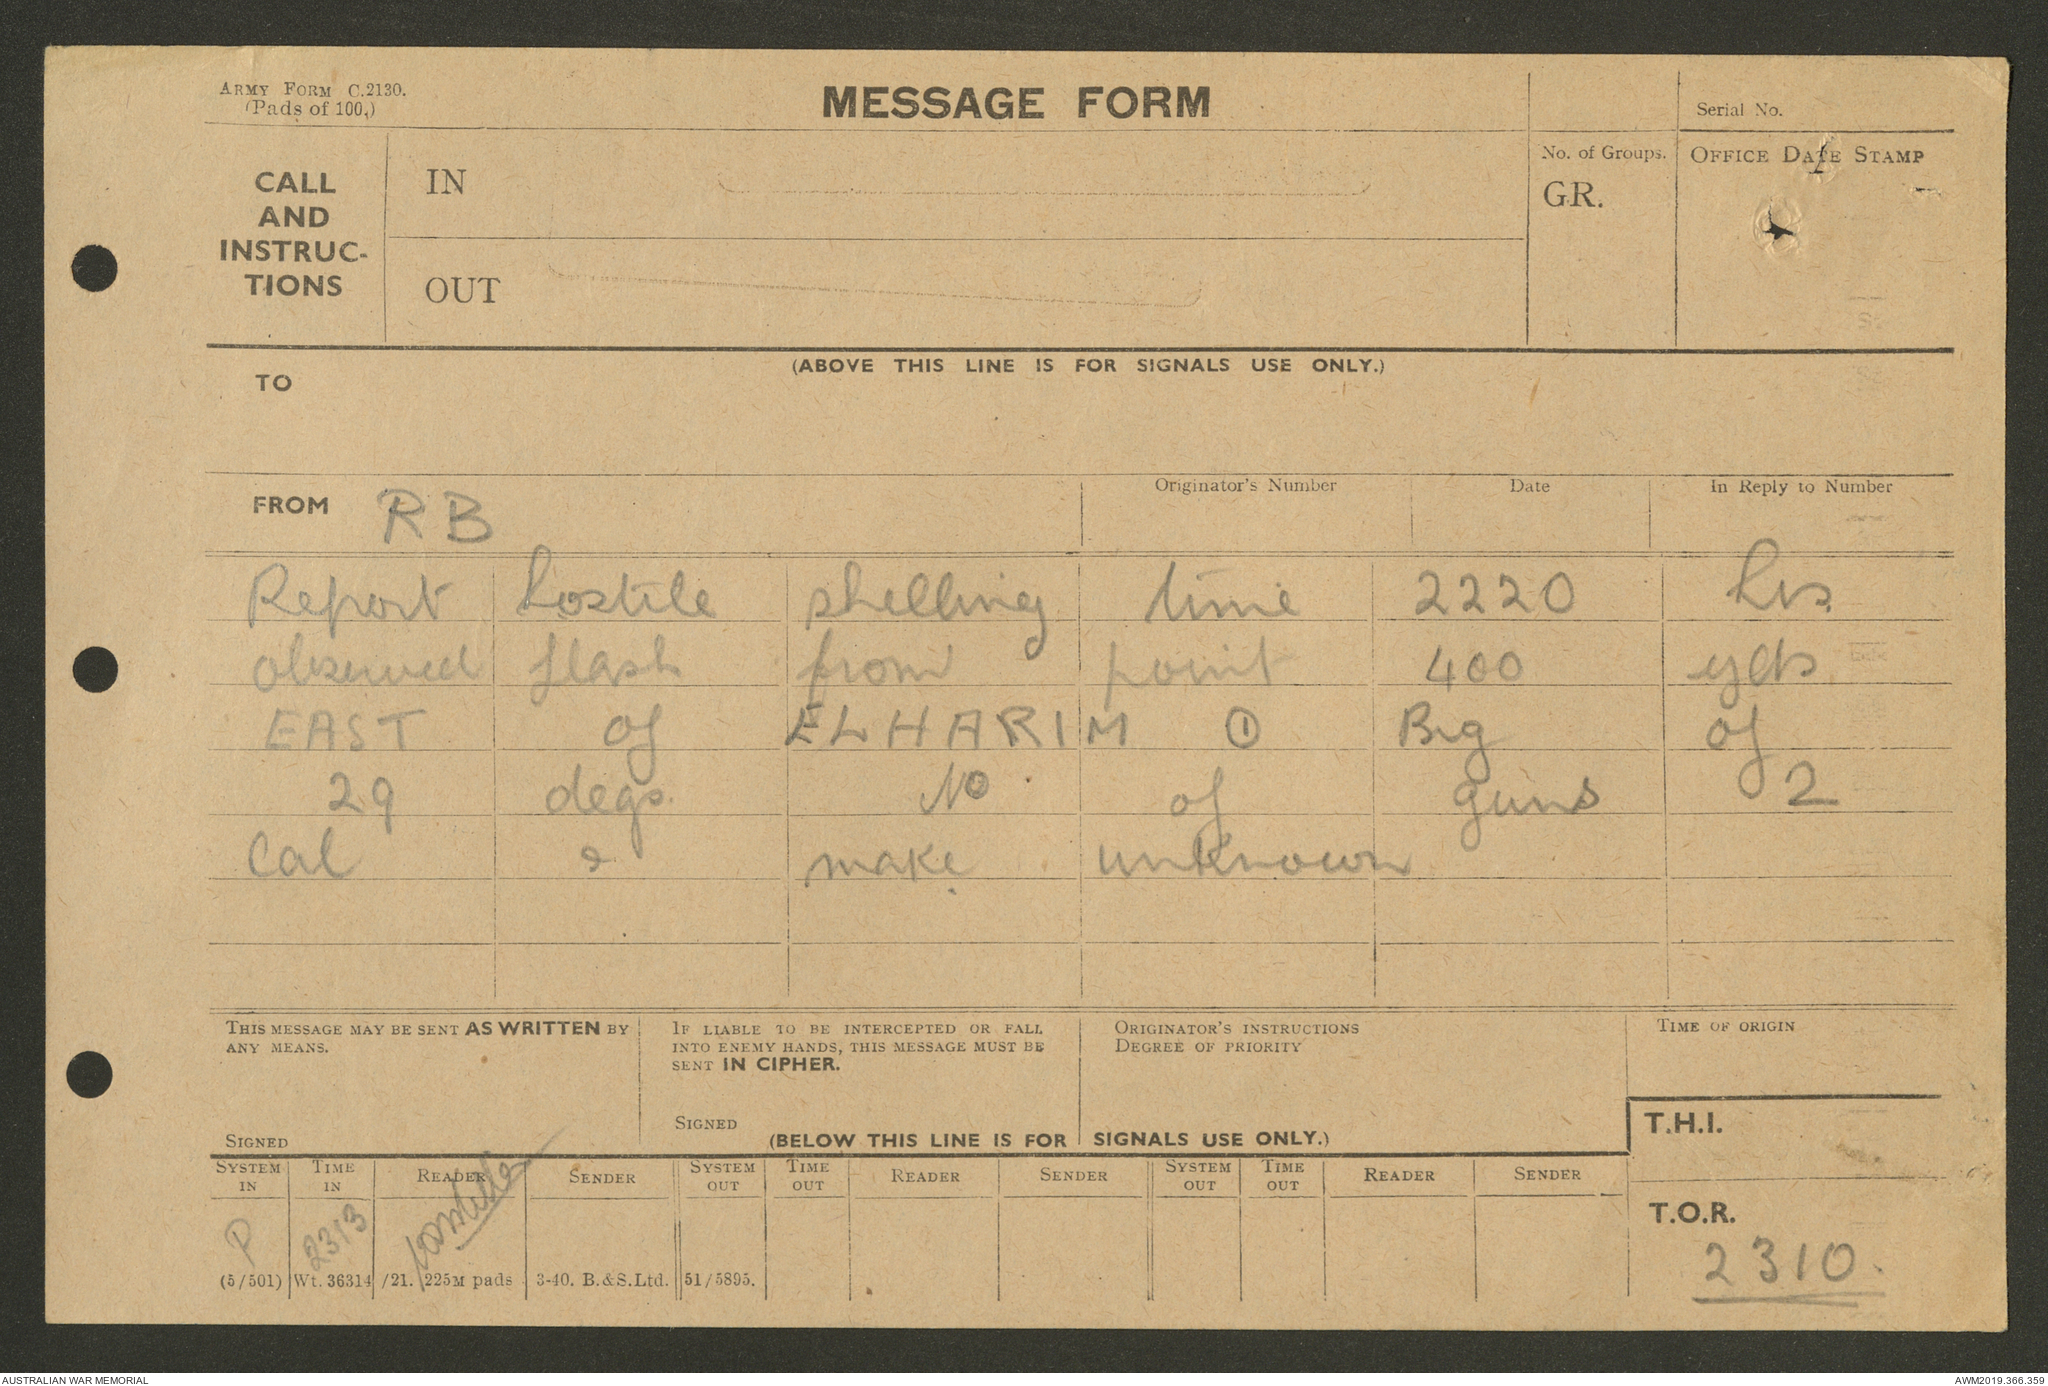 ARMY FORM C.2130.
(Pads of 100.)
MESSAGE FORM
Serial No.
CALL AND INSTRUC-TIONS
IN
No. of Groups.
GR.
OFFICE DATE STAMP
OUT
(ABOVE THIS LINE IS FOR SIGNALS USE ONLY.)
TO
FROM RB
Originator's Number
Date
In Reply to Number
Report hostile shelling time 2220 hrs.
observed flash from point 400 yds
EAST of ELHARIM ① Brg of
29 degs. No. of guns 2
Cal & make unknown
THIS MESSAGE MAY BE SENT AS WRITTEN BY
ANY MEANS.
SIGNED
IF LIABLE TO BE INTERCEPTED OR FALL
INTO ENEMY HANDS, THIS MESSAGE MUST BE
SENT IN CIPHER.
SIGNED
ORIGINATOR'S INSTRUCTIONS
DEGREE OF PRIORITY
TIME OF ORIGIN
(BELOW THIS LINE IS FOR SIGNALS USE ONLY.)
T.H.I.
SYSTEM IN TIME IN READER SENDER SYSTEM OUT TIME OUT READER SENDER SYSTEM OUT TIME OUT READER SENDER
P 2313
T.O.R.
2310.
(5/501) Wt. 36314/21. 225M pads 3-40. B.&S.Ltd. 51/5895.
AUSTRALIAN WAR MEMORIAL
AWM2019.366.359